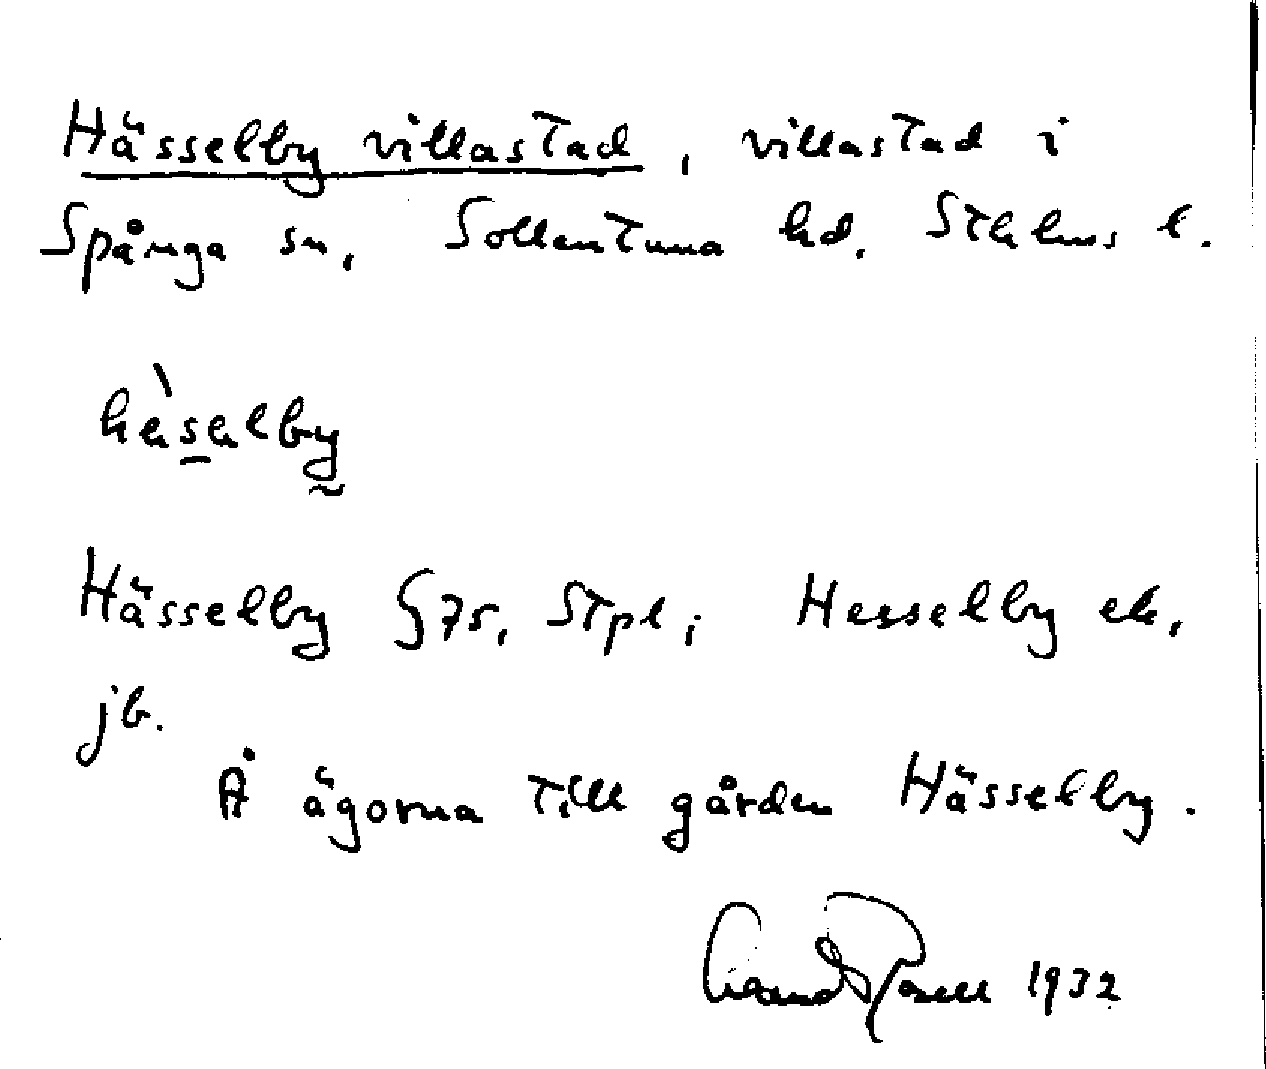 Hässelby villastad, villastad i
Spånga sn, Sollentuna hd. Sthlms l.
hàsəlby
Hässelby § 75, Stpl; Hesselby ek,
jb.
Å ägorna till gården Hässelby.
1932